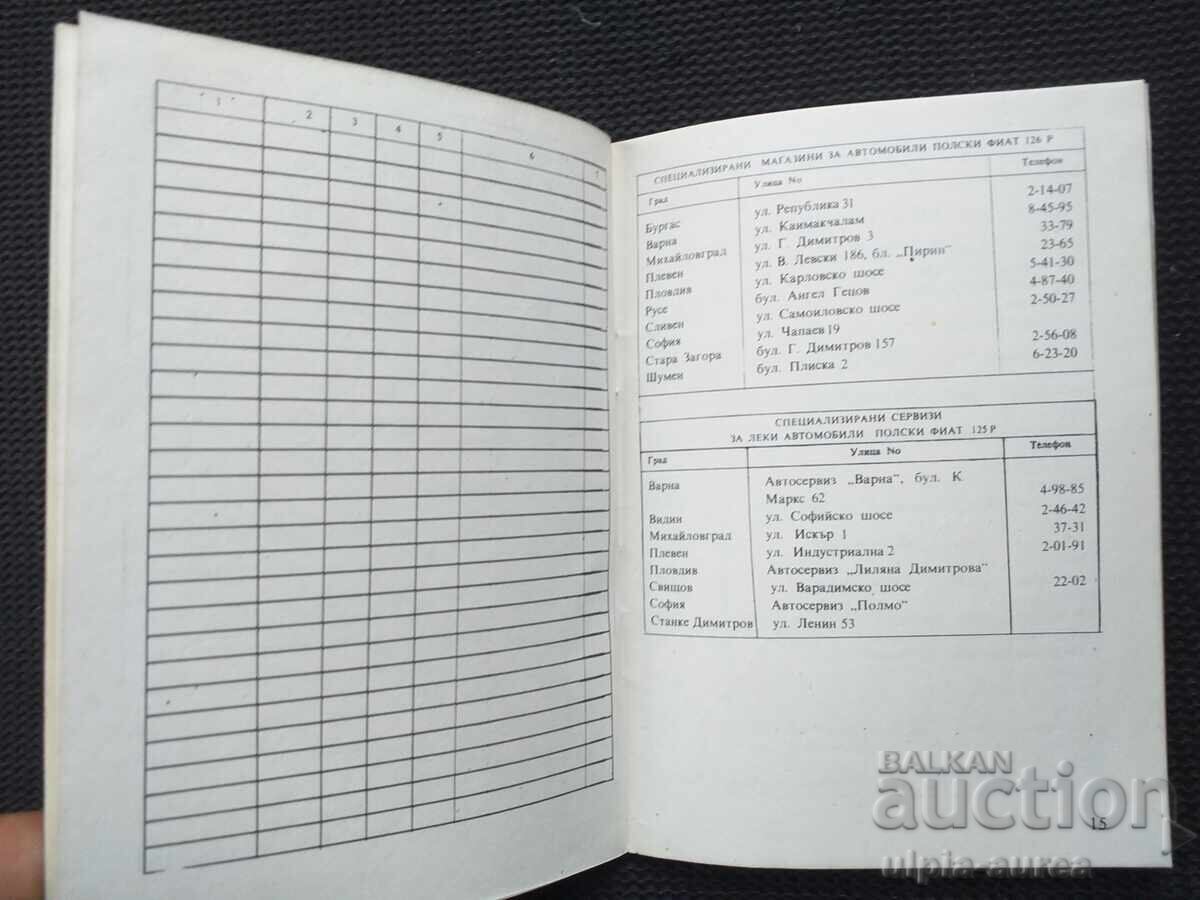 1 2 3 4 5 6 7
СПЕЦИАЛИЗИРАНИ МАГАЗИНИ ЗА АВТОМОБИЛИ ПОЛСКИ ФИАТ 126 P
Град Улица No Телефон
Бургас ул. Република 31 2-14-07
Варна ул. Каимакчалам 8-45-95
Михайловград ул. Г. Димитров 3 33-79
Плевен ул. В. Левски 186, бл. „Пирин" 23-65
Пловдив ул. Карловско шосе 5-41-30
Русе бул. Ангел Гецов 4-87-40
Сливен ул. Самоиловско шосе 2-50-27
София ул. Чапаев 19
Стара Загора бул. Г. Димитров 157 2-56-08
Шумен бул. Плиска 2 6-23-20
СПЕЦИАЛИЗИРАНИ СЕРВИЗИ
ЗА ЛЕКИ АВТОМОБИЛИ ПОЛСКИ ФИАТ 125 P
Град Улица No Телефон
Варна Автосервиз „Варна", бул. К
Маркс 62 4-98-85
Видин ул. Софийско шосе 2-46-42
Михайловград ул. Искър 1 37-31
Плевен ул. Индустриална 2 2-01-91
Пловдив Автосервиз „Лиляна Димитрова"
Свищов ул. Варадимско шосе 22-02
София Автосервиз „Полмо"
Станке Димитров ул. Ленин 53
15
BALKAN
auction
ulpia-aurea